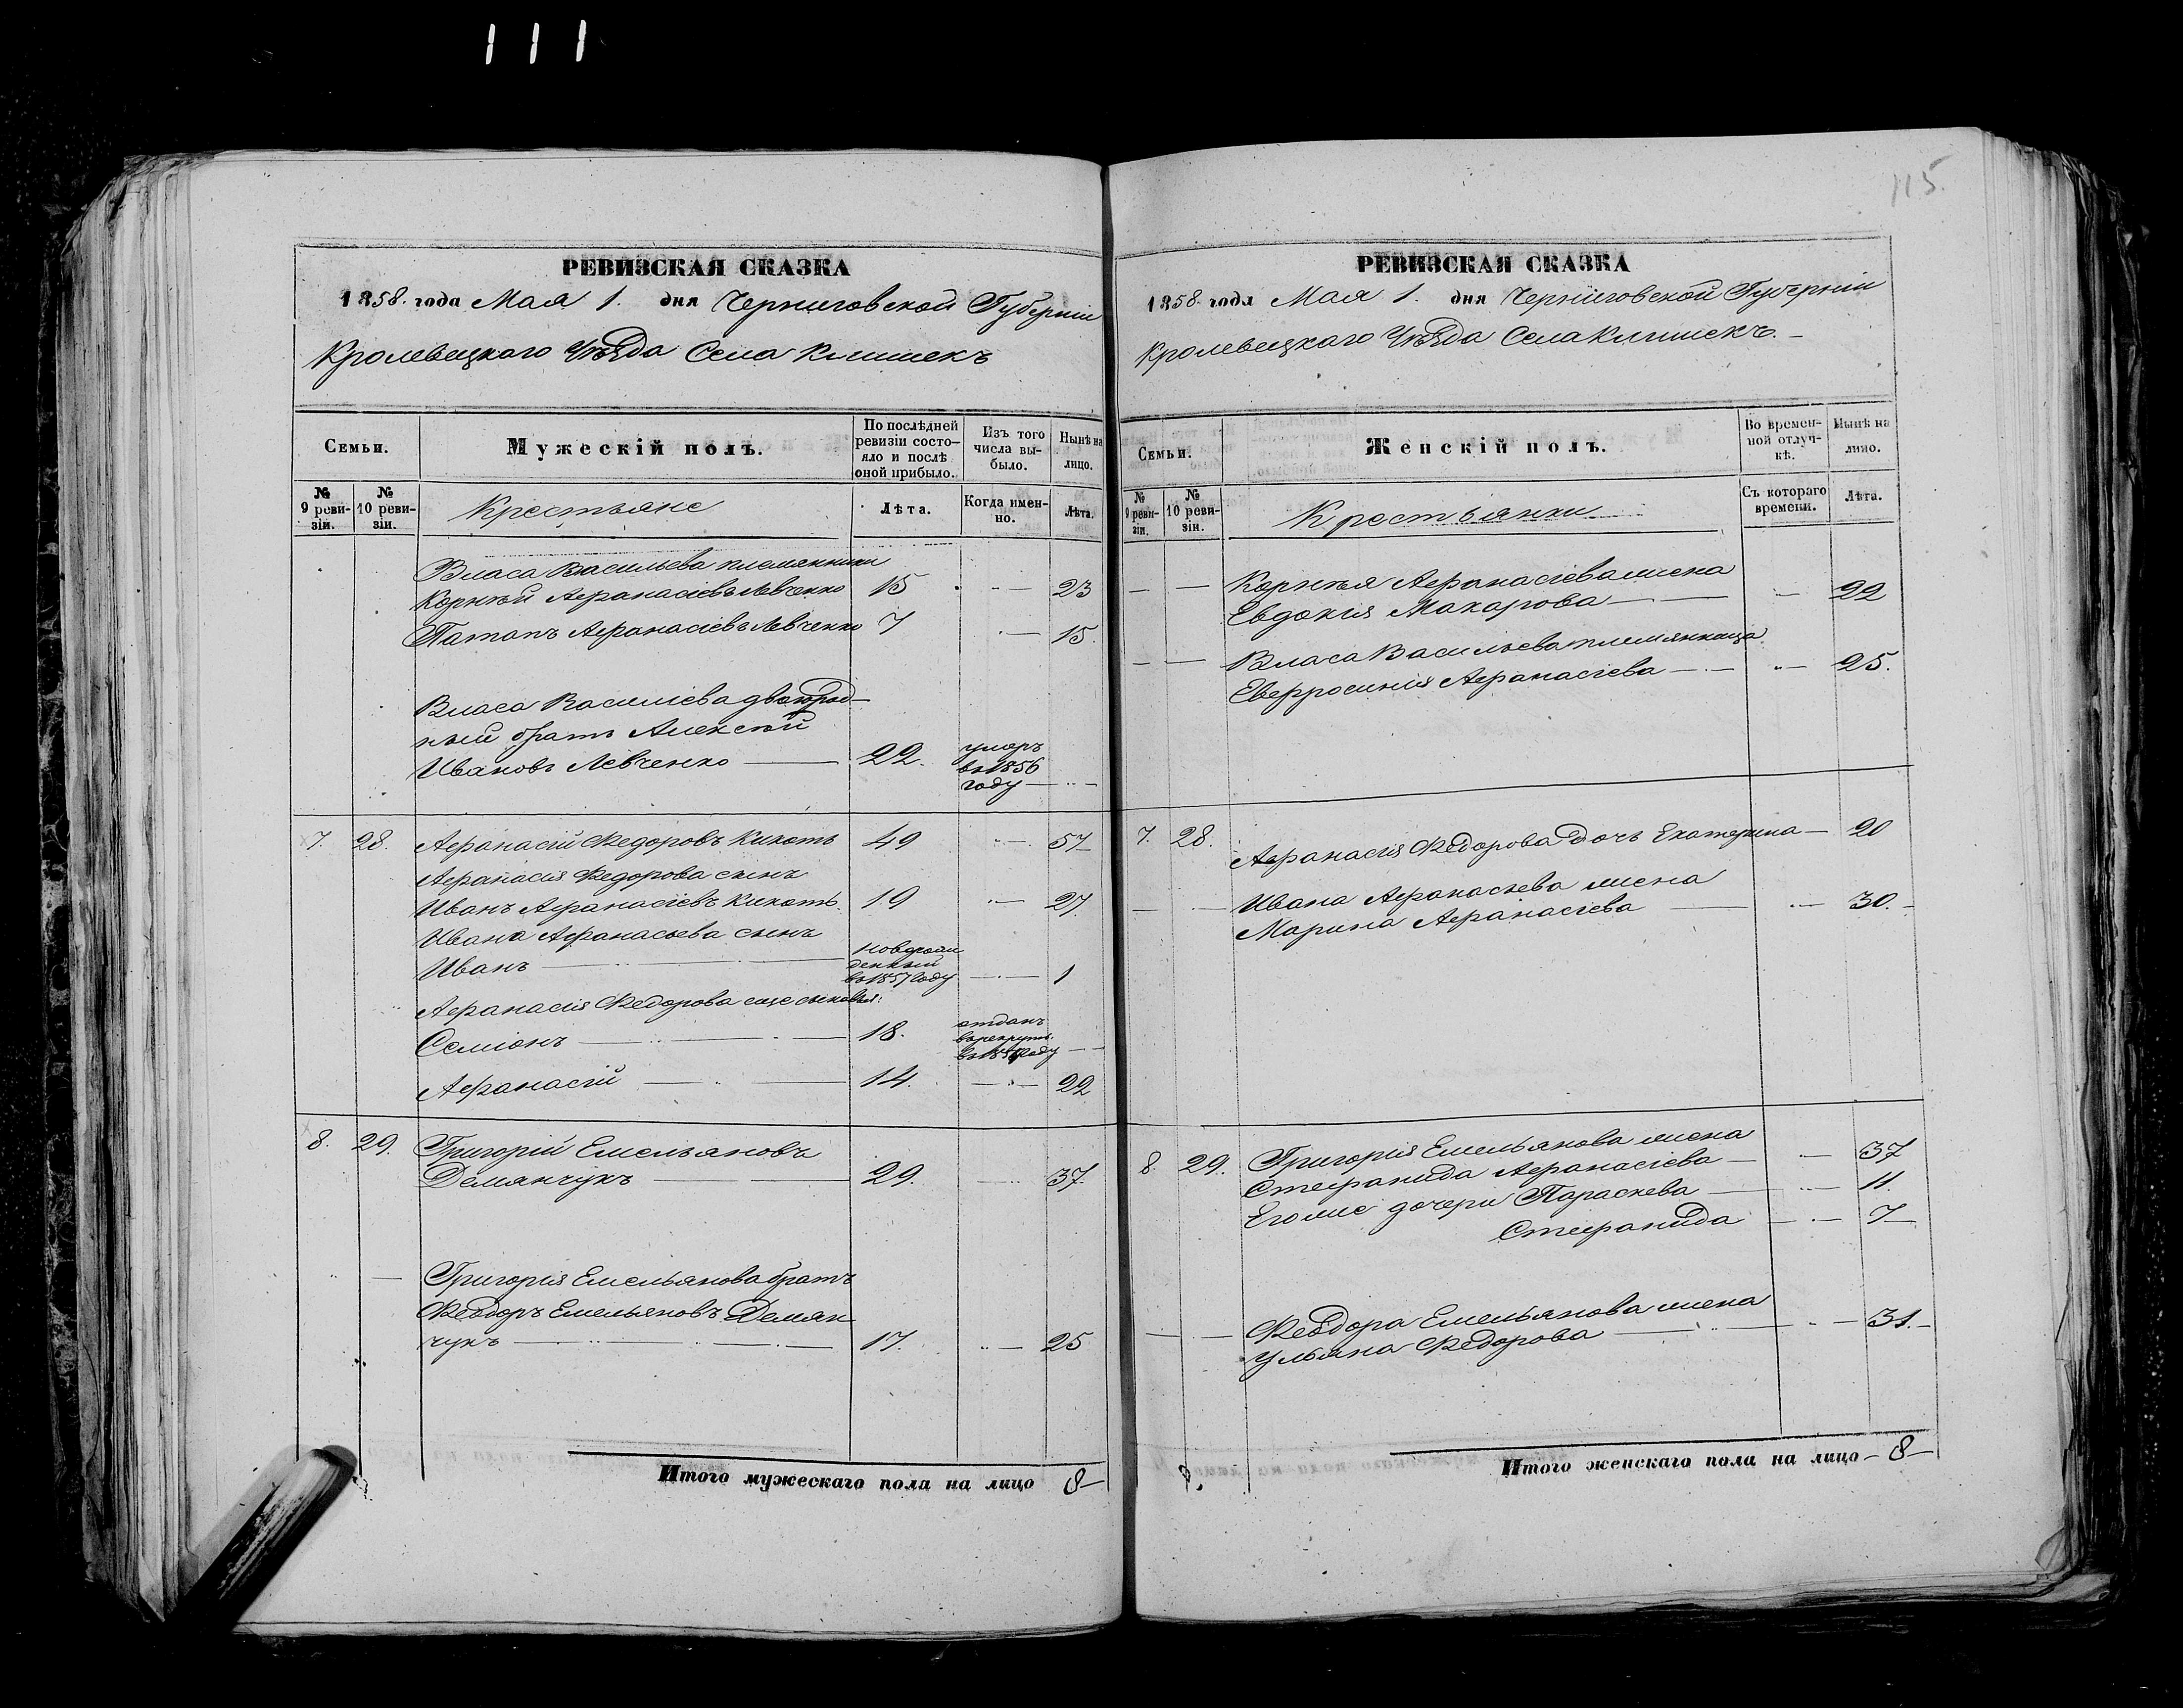 111
115.
РЕВИЗСКАЯ СКАЗКА
1858. года Мая 1. дня Черниговской Губерніи
Кролевецкаго Уѣзда Села Клишекъ
Семьи.
Мужескій полъ.
По послѣдней ревизіи состо-
яло и послѣ оной прибыло.
Изъ того числа вы-
было.
Нынѣ на лицо.
№ 9 реви-
зіи.
№ 10 реви-
зіи.
Крестьяне
Лѣта.
Когда имен-
но.
Лѣта.
Власа Васильева племянники
Корнѣй Афанасіевъ Левченко 15 " — 23
Потапъ Афанасіевъ Левченко 7 " — 15.
Власа Василіева двоюрод-
ный братъ Алексѣй
Ивановъ Левченко — 22. умеръ
въ 1856
году — " —
7. 28. Афанасій Федоровъ Кикоть 49 " — 57
Афанасія Федорова сынъ
Иванъ Афанасіевъ Кикоть. 19 " — 27.
Ивана Афанасьева сынъ
Иванъ — новорож-
денный
въ 1857 году — " — 1
Афанасія Федорова еще сыновья:
Семіонъ — 18. отданъ
въ рекруты.
году —
Афанасій — 14. — " — 22
8. 29. Григорій Емельяновъ
Демянчукъ — 29. — " 37.
Григорія Емельянова братъ
Феодоръ Емельяновъ Демян-
чукъ — 17. " — 25
Итого мужескаго пола на лицо 8 —
РЕВИЗСКАЯ СКАЗКА
1858. года Мая 1. дня Черниговской Губерніи
Кролевецкаго Уѣзда Села Клишекъ. —
Семьи.
Женскій полъ.
Во времен-
ной отлуч-
кѣ.
Нынѣ на лицо.
№ 9 реви-
зіи.
№ 10 реви-
зіи.
Крестьянки
Съ котораго времени.
Лѣта.
— — Корнѣя Афанасіева жена
Евдокія Макарова — " — 22
— — Власа Васильева племянница
Евфросинія Афанасіева — " — 25.
7. 28. Афанасія Федорова дочь Екатерина — 20
— — Ивана Афанасьева жена
Марина Афанасіева — " — 30. —
8. 29. Григорія Емельянова жена
Стефанида Афанасіева — " — 37
Егоже дочери Параскева — " — 11.
Стефанида — " — 7 —
— — Феодора Емельянова жена
Ульяна Федорова — " — 31. —
Итого женскаго пола на лицо — 8 —